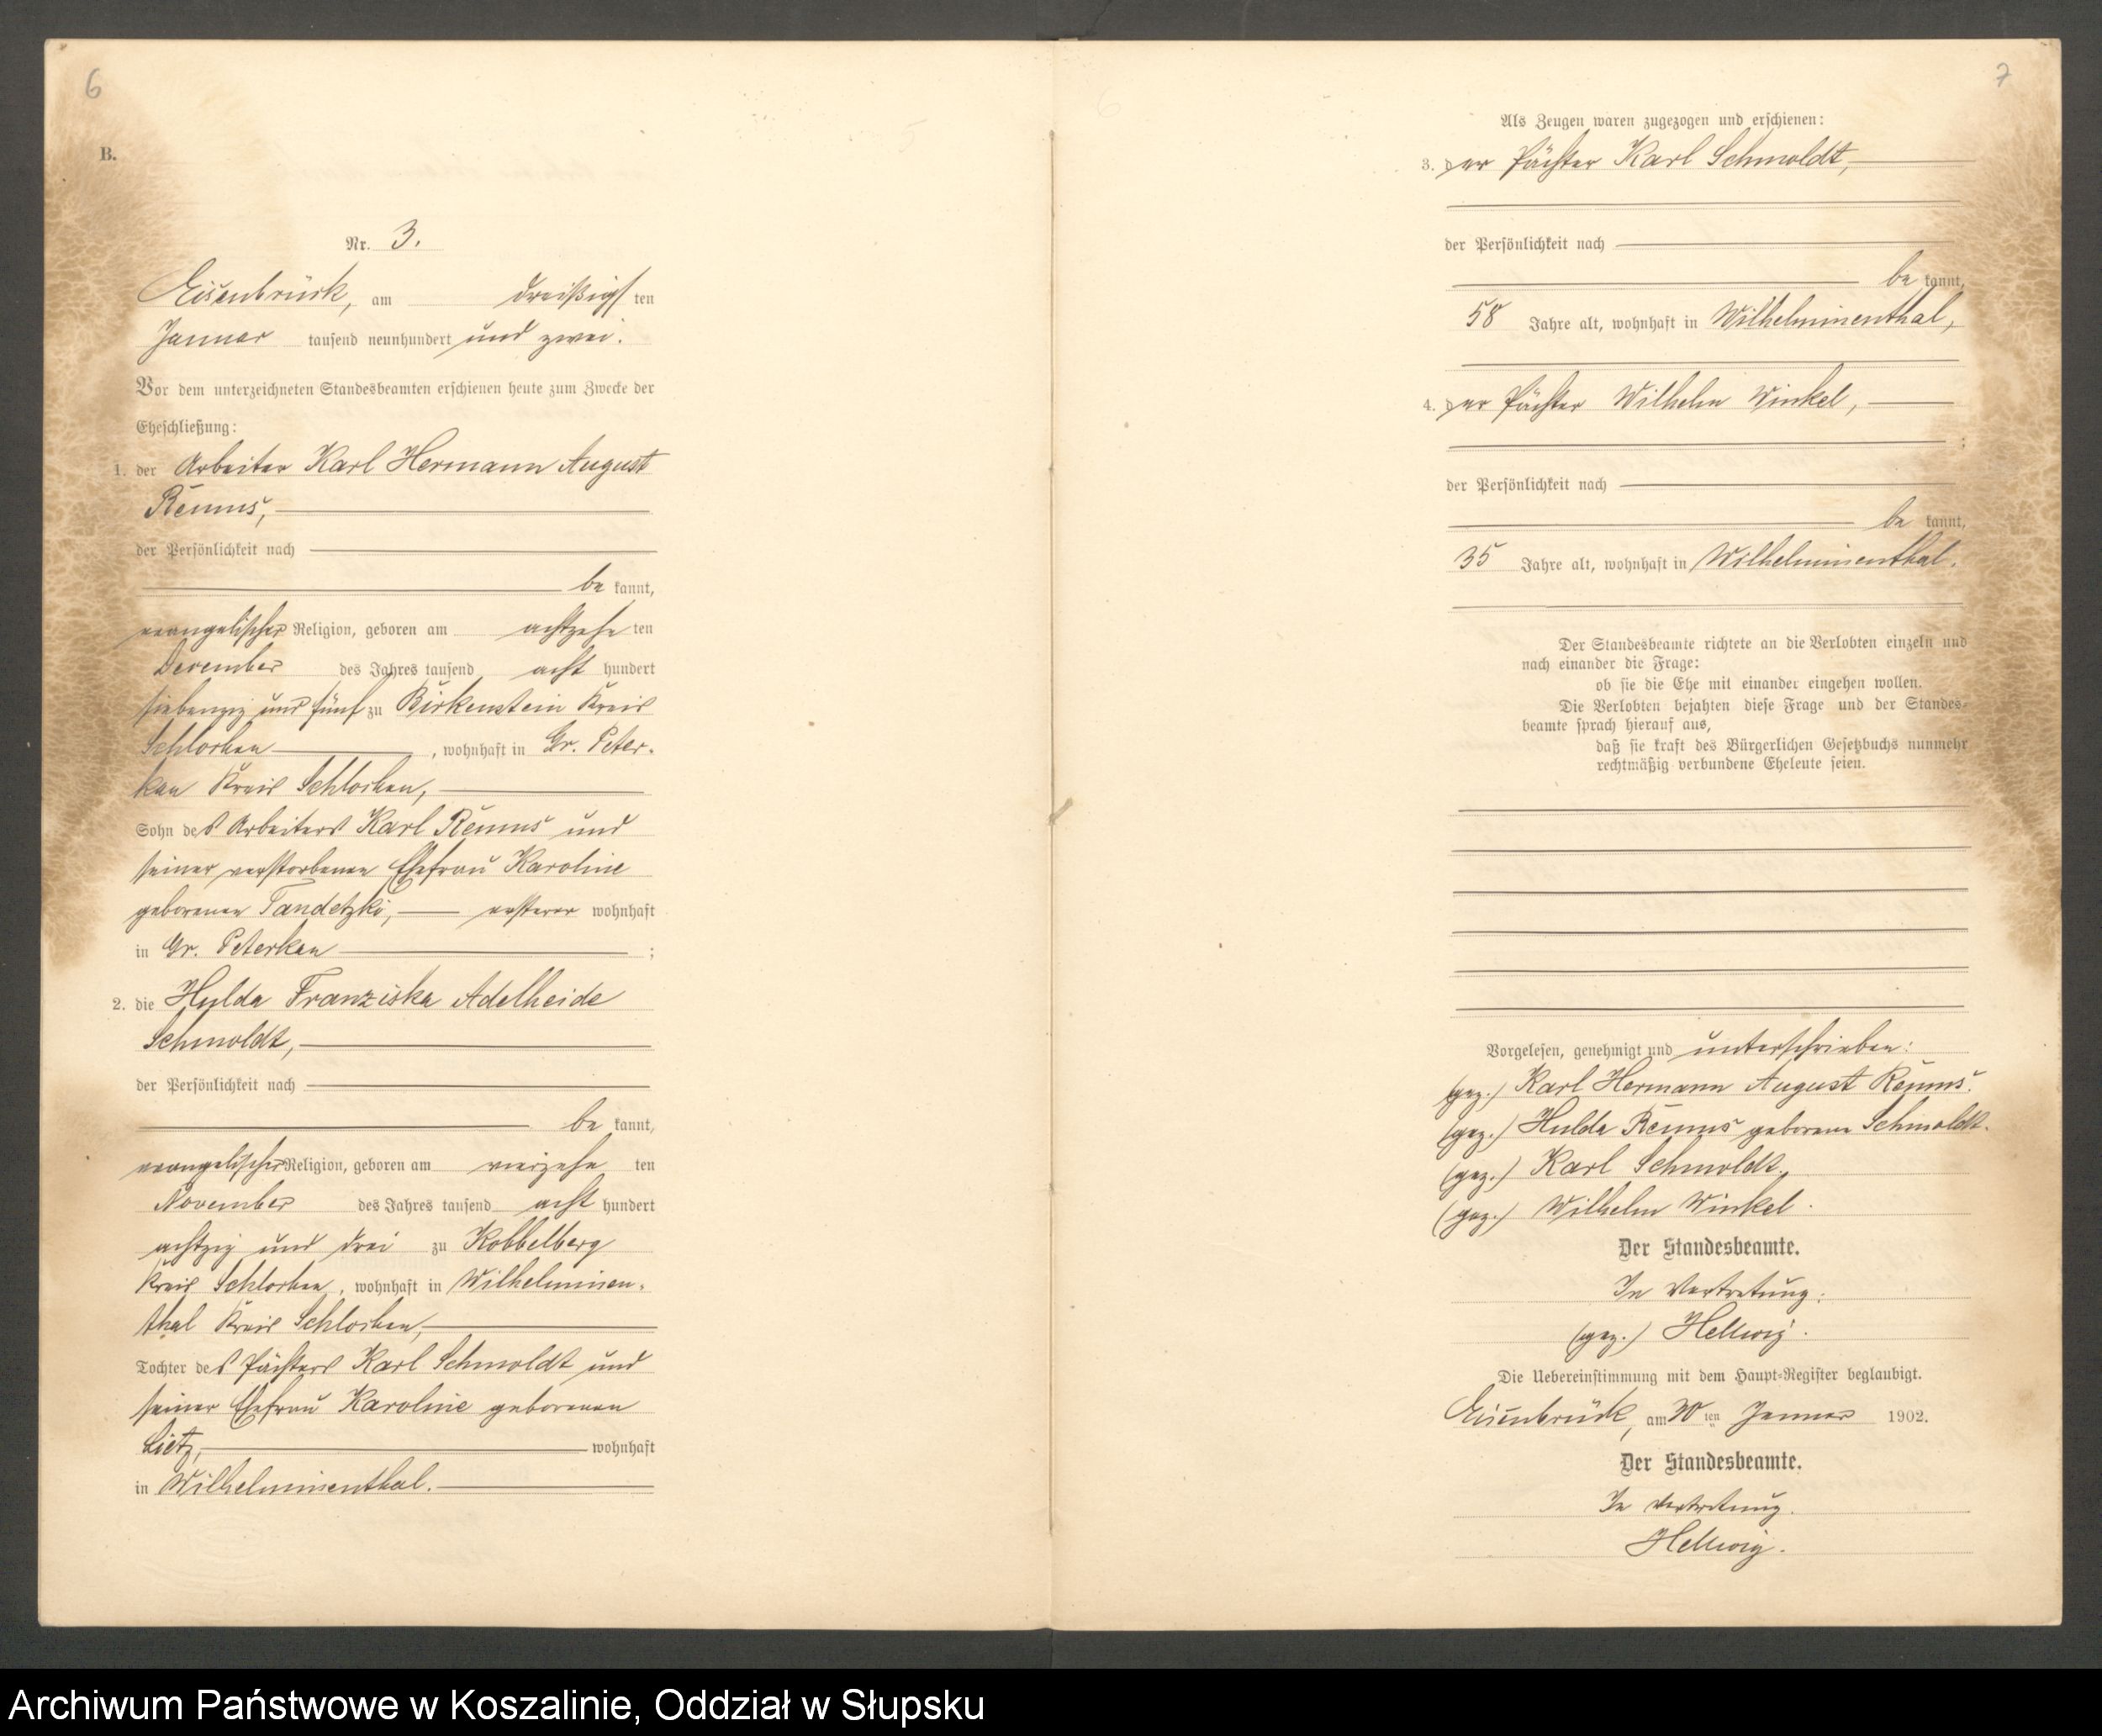 6
B.
Nr. 3.
Eisenbrück, am dreißigsten
Januar tausend neunhundert und zwei.
Vor dem unterzeichneten Standesbeamten erschienen heute zum Zwecke der
Eheschließung:
1. der Arbeiter Karl Hermann August
Remus,
der Persönlichkeit nach
be kannt,
evangelischer Religion, geboren am achtzehn ten
Dezember des Jahres tausend acht hundert
siebenzig und fünf zu Birkenstein Kreis
Schlochau, wohnhaft in Gr. Peter-
kau Kreis Schlochau,
Sohn des Arbeiters Karl Remus und
seiner verstorbenen Ehefrau Karoline
geborenen Tandetzki, ersterer wohnhaft
in Gr. Peterkau ;
2. die Hulda Franziska Adelheide
Schmoldt,
der Persönlichkeit nach
be kannt,
evangelischer Religion, geboren am vierzehn ten
November des Jahres tausend acht hundert
achtzig und drei zu Kobbelberg
Kreis Schlochau, wohnhaft in Wilhelminen-
thal Kreis Schlochau,
Tochter des Pächters Karl Schmoldt und
seiner Ehefrau Karoline geborenen
Lietz, wohnhaft
in Wilhelminenthal.
7
Als Zeugen waren zugezogen und erschienen:
3. der Pächter Karl Schmoldt,
der Persönlichkeit nach
be kannt,
58 Jahre alt, wohnhaft in Wilhelminenthal,
4. der Pächter Wilhelm Winkel,
;
der Persönlichkeit nach
be kannt,
35 Jahre alt, wohnhaft in Wilhelminenthal.
Der Standesbeamte richtete an die Verlobten einzeln und
nach einander die Frage:
ob sie die Ehe mit einander eingehen wollen.
Die Verlobten bejahten diese Frage und der Standes-
beamte sprach hierauf aus,
daß sie kraft des Bürgerlichen Gesetzbuchs nunmehr
rechtmäßig verbundene Eheleute seien.
Vorgelesen, genehmigt und unterschrieben:
(gez.) Karl Hermann August Remus.
(gez.) Hulda Remus geborene Schmoldt.
(gez.) Karl Schmoldt.
(gez.) Wilhelm Winkel.
Der Standesbeamte.
In Vertretung:
(gez.) Hellwig.
Die Uebereinstimmung mit dem Haupt-Register beglaubigt.
Eisenbrück, am 30ten Januar 1902.
Der Standesbeamte.
In Vertretung.
Hellwig.
Archiwum Państwowe w Koszalinie, Oddział w Słupsku